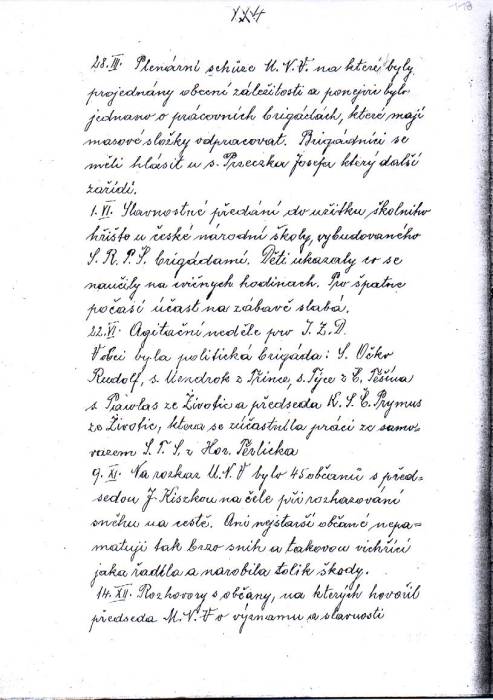 114
28.III. Plenární schůze M.N.V. na které byly
projednány obecní záležitosti a ponejvíc bylo
jednano o pracovních brigádách, které mají
masové složky odpracovat. Brigádníci se
měli hlásit u s. Przeczka Josefa který další
zařídí.
1.VI. Slavnostné předání do užitku školního
hřiště u české národní školy, vybudovaného
S.R.P.Š. brigádami. Děti ukazaly co se
naučily na cvičných hodinach. Pro špatne
počasí účast na zábavě slabá.
22.VI. Agitační neděle pro J.Z.D.
V obci byla politická brigáda: S. Očko
Rudolf, s. Uendrok z Třince, s. Tyce z Č. Těšína
s. Pawlas ze Životic a předseda K.S.Č. Prymus
ze Životic, ktera se zúčastnila práci ze samo-
vazem S.T.S. z Hor. Těrlicka
9.XI. Na rozkaz M.N.V bylo 45 občanů s před-
sedou J. Kiszkou na čele při rozhazování
sněhu na cestě. Ani nejstarší občané nepa=
matují tak brzo snih a takovou vichřící
jaka řadila a narobila tolik škody.
14.XII. Rozhovory s občany, na kterých hovořil
předseda M.N.V o významu a slavnosti